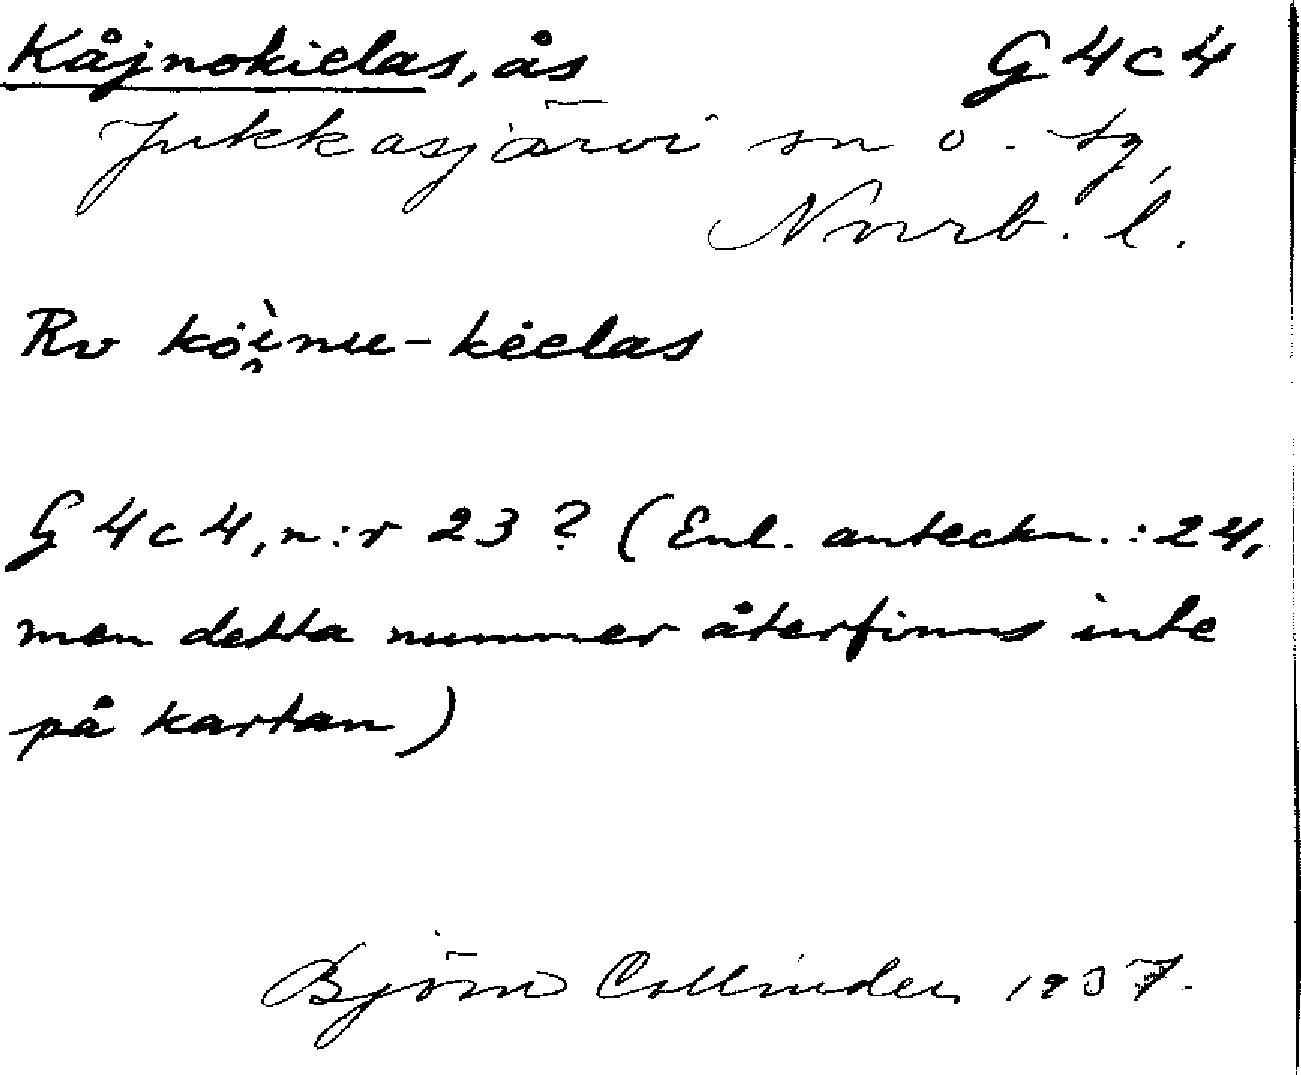 Kåjnokielas, ås G4c4
Jukkasjärvi sn o. tg,
Norrb. l.
Rv kȯì̯nu-kėelas
G4c4, n:r 23? (Enl. anteckn.: 24,
men detta nummer återfinns inte
på kartan)
Björn Collinder 1937.